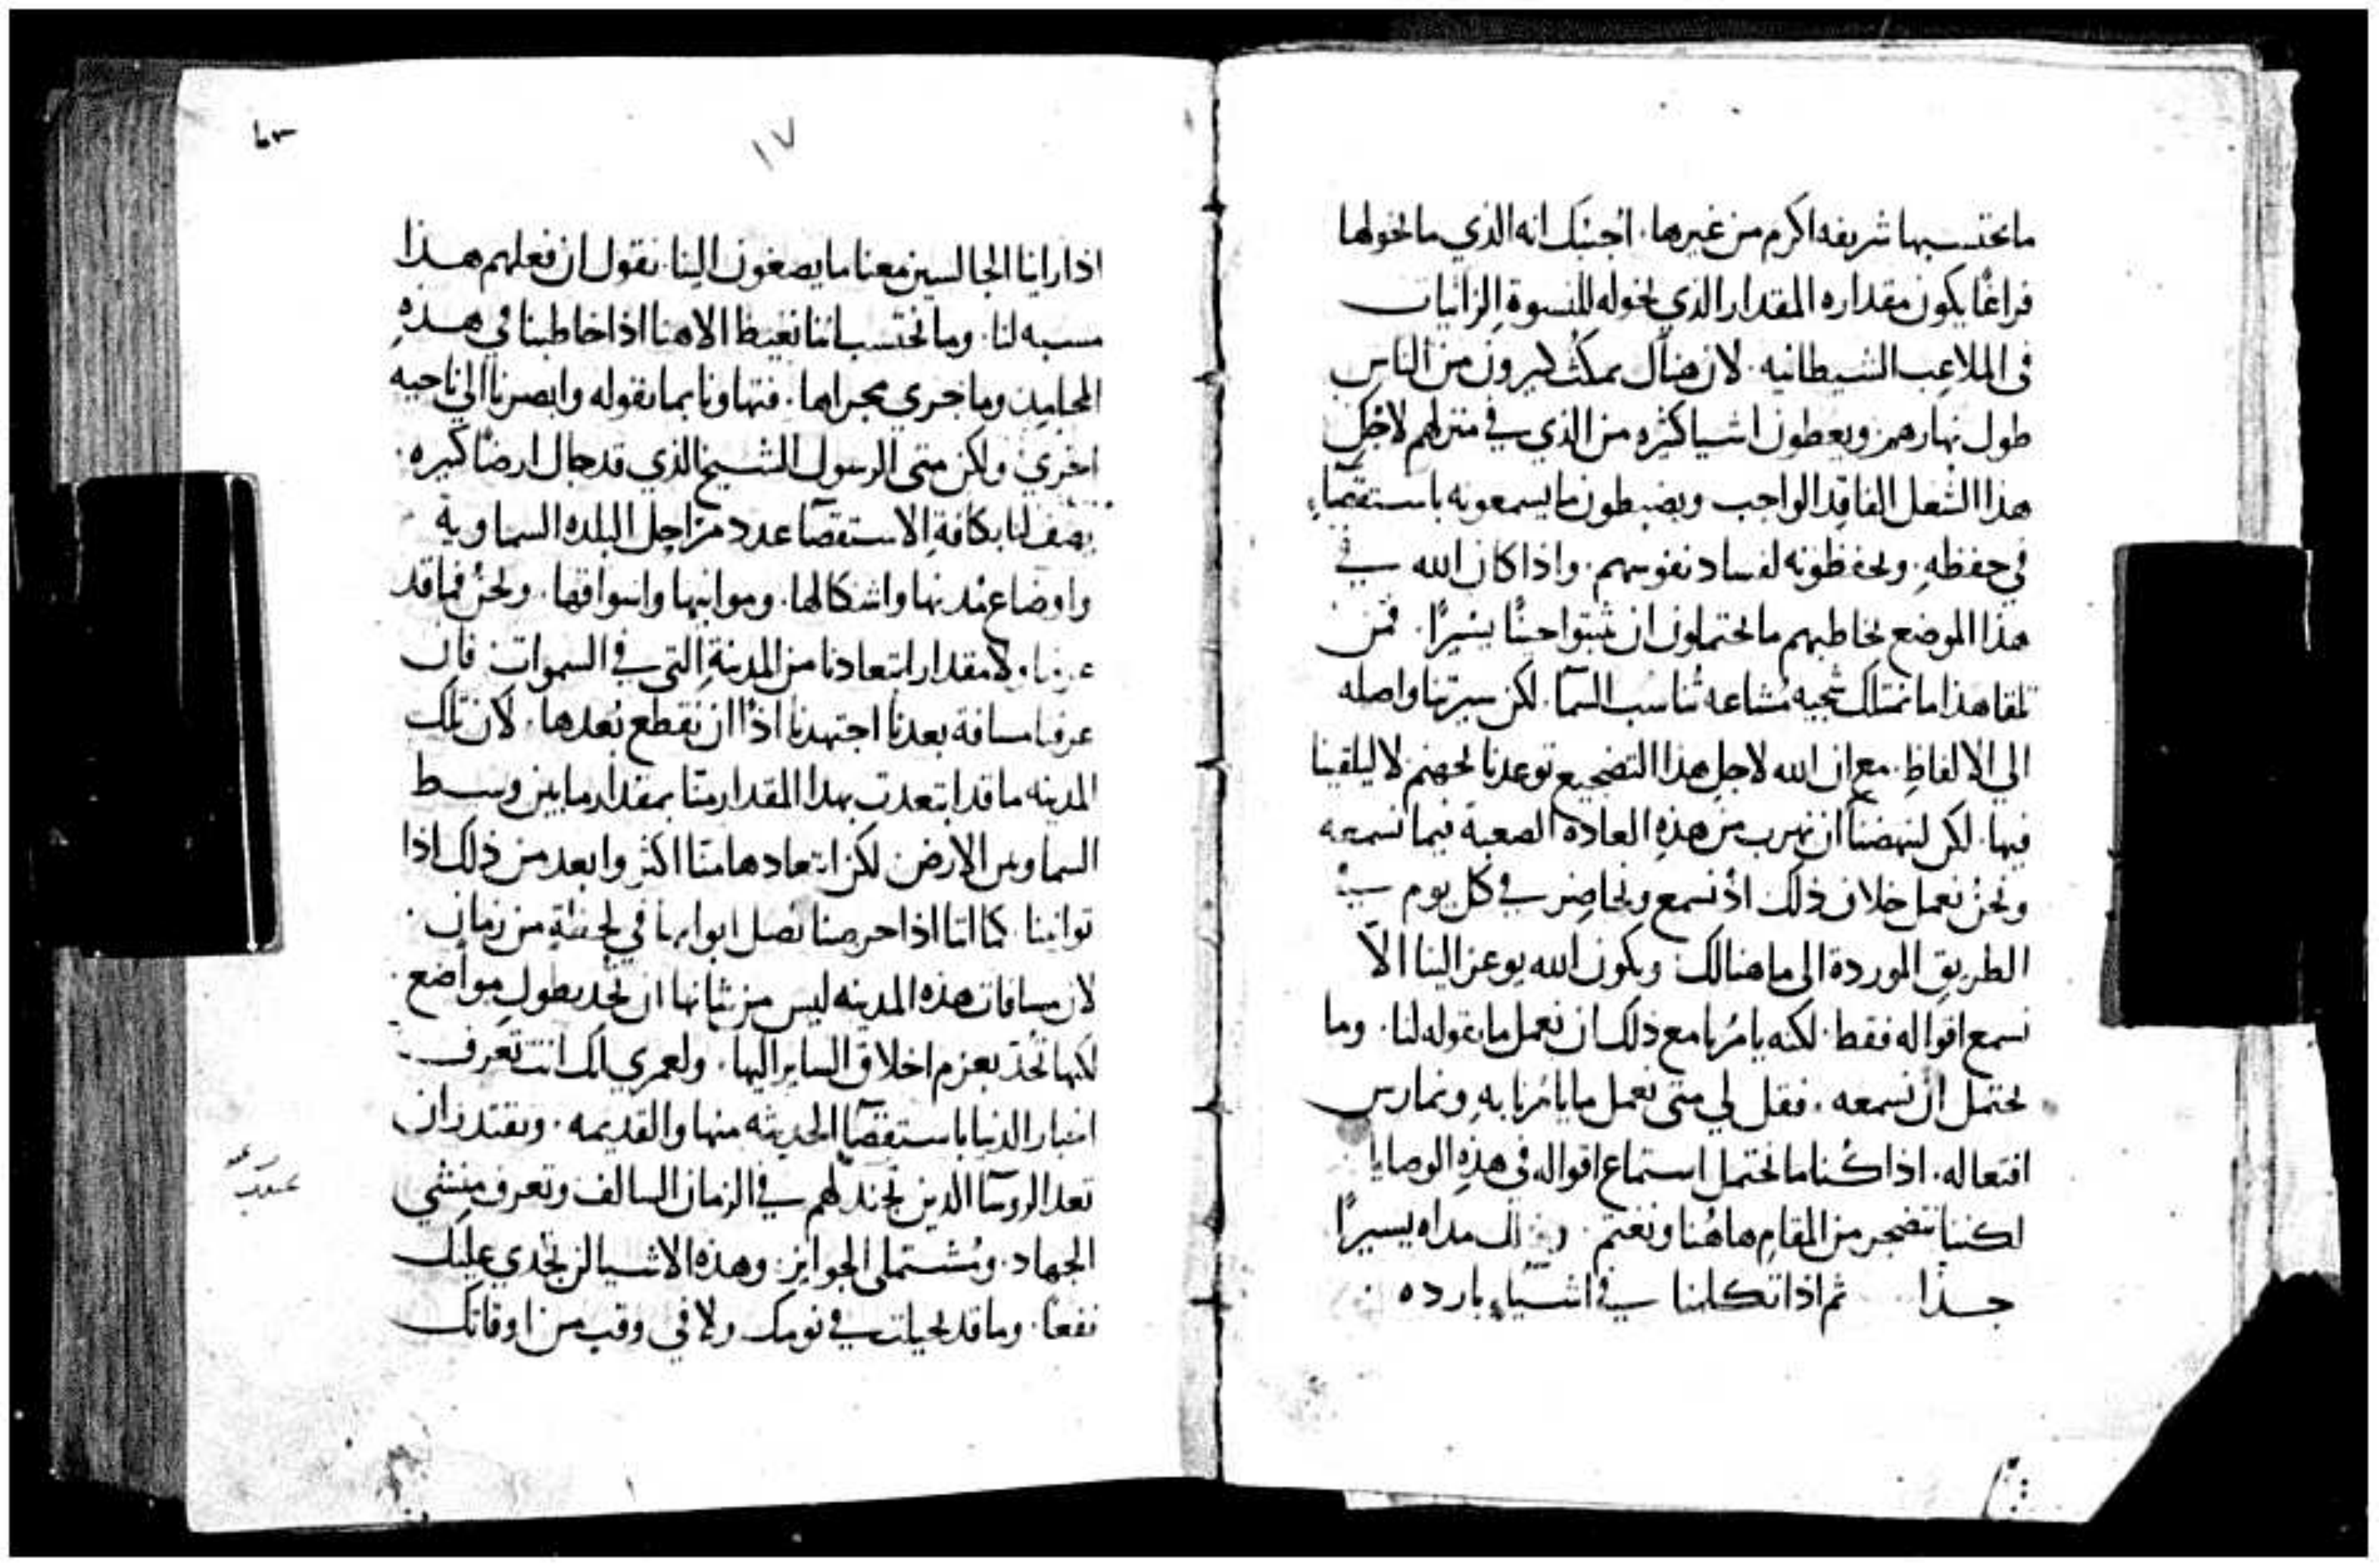 ما نحتسبها شريفه اكرم من غيرها. اجبتك انه الذي ما نخولها
فراغًا يكون مقداره المقدار الذي نخوله للنسوة الزانيات
في الملاعب الشيطانيه. لان هناك يمكث كثيرون من الناس
طول نهارهم ويعطون اشيا كثيره من الذي في منزلهم لاجل
هذا الشغل الفاقد الواجب ويضبطون ما يسمعونه باستقصاءٍ
في حفظهِ. ويحفظونه لفساد نفوسهم. واذا كان الله في
هذا الموضع يخاطبهم ما يحتملون ان يثبتوا حينًا يسيرًا. فمن
تلقا هذا ما نمتلك سجيه مشاعه تناسب السمآ. لكن سيرتنا واصله
الي الالفاظِ. مع ان الله لاجل هذا التضجيع توعدنا بجهنم لا ليلقينا
فيها. لكن لينهضنا ان نهرب من هذهِ العادة الصعبة فيما نسمعه
ونحن نعمل خلاف ذلك اذ نسمع ونحاضر في كل يوم في
الطريق الموردة الى ما هنالك ويكون الله يوعز الينا الاّ
نسمع اقواله فقط. لكنه يامرنا مع ذلك ان نعمل ما يقوله لنا. وما
نحتمل ان نسمعه. فقل لي متى نعمل ما يامرنا بهِ ونمارس
افتعاله. اذا كنا ما نحتمل استماع اقواله في هذهِ الوصايا
لكننا نتضجر من المقام هاهُنا ونغتم. مداه يسيرًا
جدًا ثم اذا تكلمنا في اشيآءٍ بارده
١٧
اذا راينا الجالسين معنا ما يصغون الينا. نقول ان فعلهم هذا
مسبه لنا. وما نحتسب اننا نغيظ الاهنا اذا خاطبنا في هذهِ
المحامد وما جري مجراها. فتهاونا بما يقوله وابصرنا الي ناحيه
اخري. ولكن متى الرسول الشيخ الذي قد جال ارضًا كثيره.
يصف لنا بكافةِ الاستقصآ عدد مراحل البلده السماوية
واوضاع مدنها واشكالها. وموانيها واسواقها. ونحن فما قد
عرفنا ولا مقدار ابتعادنا من المدينةِ التي في السموات فان
عرفنا مسافة بعدنا اجتهدنا اذًا ان نقطع بُعدها. لان تلك
المدينه ما قد ابتعدت بهذا المقدار منّا بمقدار ما بين وسط
السما وبين الارض لكن ابتعادها منّا اكثر وابعد من ذلك اذا
توانينا. كما اننا اذا حرصنا نصل ابوابها في لحظةٍ من زمان.
لان مسافات هذه المدينه ليس من شانها ان تُحد بطول مواضع.
لكنها تُحد بعزم اخلاق الساير اليها. ولعمري انك انت تعرف
اخبار الدنيا باستقصآ الحديثه منها والقديمه. وتقتدر ان
تعد الروسآ الذين تجند لهم في الزمان السالف وتعرف منشي
الجهاد. ومشتملى الجوايز. وهذه الاشيا لن تجدي عليك
نفعًا. وما قد في نومك ولا في وقت من اوقاتك